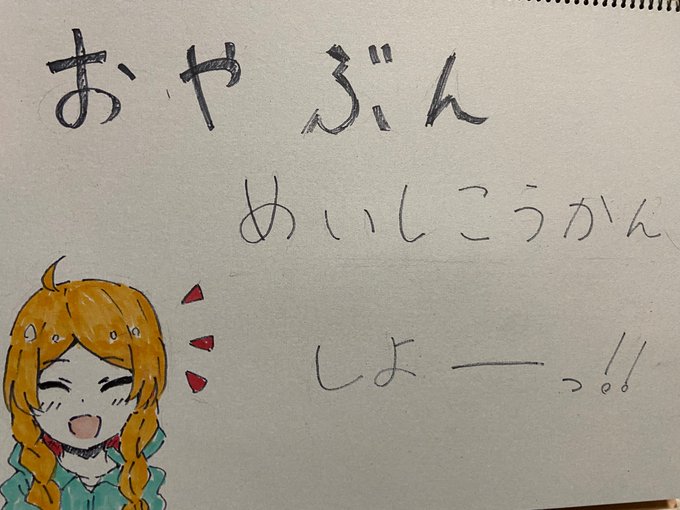 おやぶん
めいしこうかん
しよーっ!!